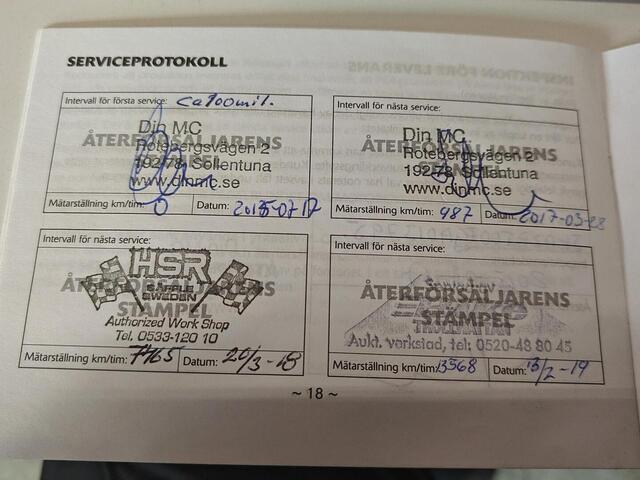 SERVICEPROTOKOLL
Intervall för första service: ca 100 mil.
Din MC
ÅTERFÖRSÄLJARENS
Rotebergsvägen 2
192 78 Sollentuna
www.dinmc.se
Mätarställning km/tim: 0 Datum: 2015-07-17
Intervall för nästa service:
Din MC
ÅTERFÖRSÄLJARENS
Rotebergsvägen 2
STÄMPEL
192 78 Sollentuna
www.dinmc.se
Mätarställning km/tim: 987 Datum: 2017-03-28
Intervall för nästa service:
HSR
SÄFFLE
SWEDEN
ÅTERFÖRSÄLJARENS
STÄMPEL
Authorized Work Shop
Tel. 0533-120 10
Mätarställning km/tim: 7465 Datum: 20/3-18
Intervall för nästa service:
ÅTERFÖRSÄLJARENS
STÄMPEL
Aukt. verkstad, tel: 0520-48 80 45
Mätarställning km/tim: 13568 Datum: 13/2-19
~ 18 ~